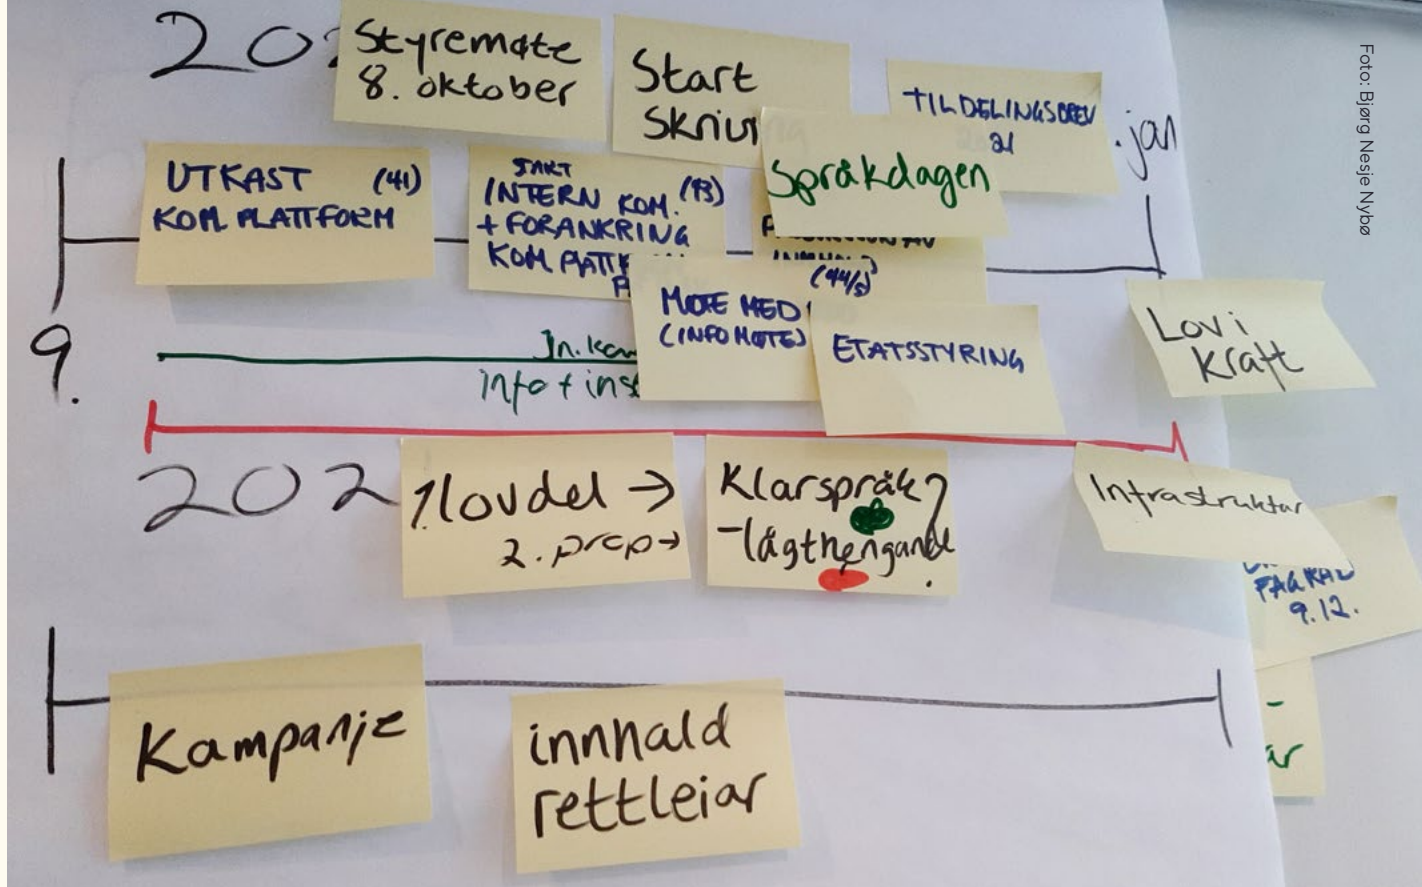 Styremøte
8. oktober
Start
TILDELINGSBREV
21
. jan
Språkdagen
UTKAST (41)
KOM PLATTFORM
START
INTERN KOM. (43)
+ FORANKRING
KOM PLATTF
(44/5)
MØTE MED
(INFOMØTE)
ETATSSTYRING
Lov i
kraft
9.
In. kam
info + inst
202
1. lovdel →
2. prep →
Klarspråk?
- lågthengande
Infrastruktur
FAGRÅD
9.12.
Kampanje
innhald
rettleiar
Foto: Bjørg Nesje Nybø